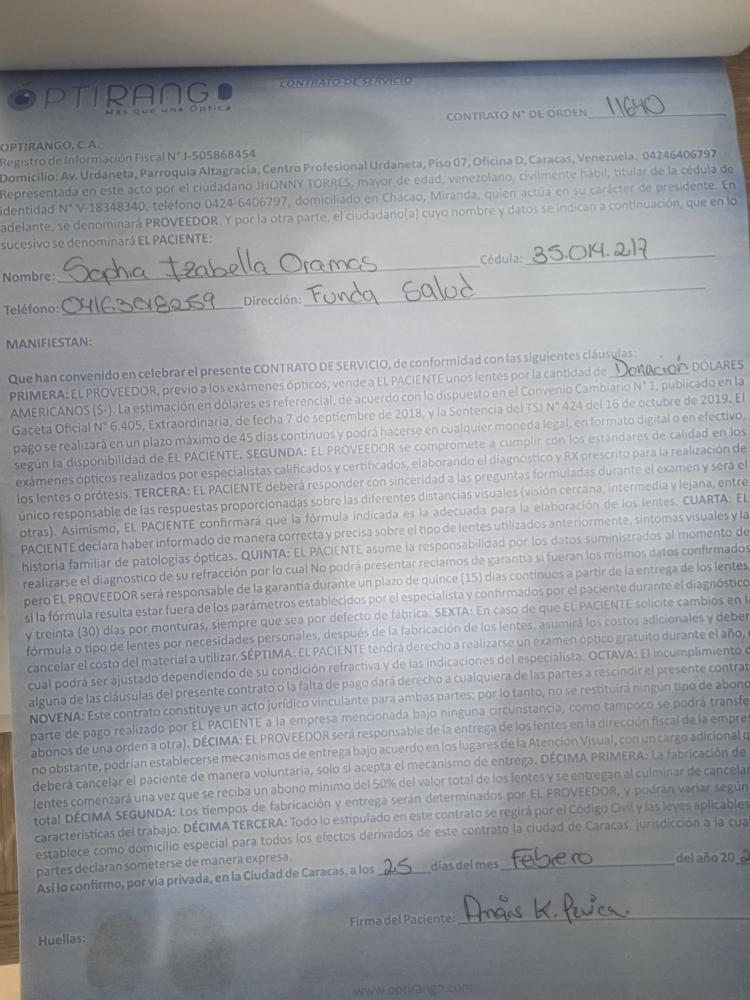 CONTRATO DE SERVICIO
OPTIRANGO
Más que una Óptica
CONTRATO N° DE ORDEN 11640
OPTIRANGO, C.A.
Registro de Información Fiscal N° J-505868454
Domicilio: Av. Urdaneta, Parroquia Altagracia, Centro Profesional Urdaneta, Piso 07, Oficina D, Caracas, Venezuela. 04246406797
Representada en este acto por el ciudadano JHONNY TORRES, mayor de edad, venezolano, civilmente hábil, titular de la cédula de
identidad N° V-18348340, teléfono 0424-6406797, domiciliado en Chacao, Miranda, quien actúa en su carácter de presidente. En
adelante, se denominará PROVEEDOR. Y por la otra parte, el ciudadano(a) cuyo nombre y datos se indican a continuación, que en lo
sucesivo se denominará EL PACIENTE:
Nombre: Sophia Izabella Oramas Cédula: 35.014.217
Teléfono: Dirección: Funda Salud
MANIFIESTAN:
Que han convenido en celebrar el presente CONTRATO DE SERVICIO, de conformidad con las siguientes cláusulas:
PRIMERA: EL PROVEEDOR, previo a los exámenes ópticos, vende a EL PACIENTE unos lentes por la cantidad de Donación DÓLARES
AMERICANOS ($-). La estimación en dólares es referencial, de acuerdo con lo dispuesto en el Convenio Cambiario N° 1, publicado en la
Gaceta Oficial N° 6.405, Extraordinaria, de fecha 7 de septiembre de 2018, y la Sentencia del TSJ N° 424 del 16 de octubre de 2019. El
pago se realizará en un plazo máximo de 45 días continuos y podrá hacerse en cualquier moneda legal, en formato digital o en efectivo,
según la disponibilidad de EL PACIENTE. SEGUNDA: EL PROVEEDOR se compromete a cumplir con los estándares de calidad en los
exámenes ópticos realizados por especialistas calificados y certificados, elaborando el diagnóstico y RX prescrito para la realización de
los lentes o prótesis. TERCERA: EL PACIENTE deberá responder con sinceridad a las preguntas formuladas durante el examen y será el
único responsable de las respuestas proporcionadas sobre las diferentes distancias visuales (visión cercana, intermedia y lejana, entre
otras). Asimismo, EL PACIENTE confirmará que la fórmula indicada es la adecuada para la elaboración de los lentes. CUARTA: EL
PACIENTE declara haber informado de manera correcta y precisa sobre el tipo de lentes utilizados anteriormente, síntomas visuales y la
historia familiar de patologías ópticas. QUINTA: EL PACIENTE asume la responsabilidad por los datos suministrados al momento de
realizarse el diagnostico de su refracción por lo cual No podrá presentar reclamos de garantía si fueran los mismos datos confirmados
pero EL PROVEEDOR será responsable de la garantía durante un plazo de quince (15) días continuos a partir de la entrega de los lentes
si la fórmula resulta estar fuera de los parámetros establecidos por el especialista y confirmados por el paciente durante el diagnóstico
y treinta (30) días por monturas, siempre que sea por defecto de fábrica. SEXTA: En caso de que EL PACIENTE solicite cambios en la
fórmula o tipo de lentes por necesidades personales, después de la fabricación de los lentes, asumirá los costos adicionales y deber
cancelar el costo del material a utilizar. SÉPTIMA: EL PACIENTE tendrá derecho a realizarse un examen óptico gratuito durante el año,
cual podrá ser ajustado dependiendo de su condición refractiva y de las indicaciones del especialista. OCTAVA: El incumplimiento
alguna de las cláusulas del presente contrato o la falta de pago dará derecho a cualquiera de las partes a rescindir el presente contrat
NOVENA: Este contrato constituye un acto jurídico vinculante para ambas partes; por lo tanto, no se restituirá ningún tipo de abono
parte de pago realizado por EL PACIENTE a la empresa mencionada bajo ninguna circunstancia, como tampoco se podrá transfe
abonos de una orden a otra). DÉCIMA: EL PROVEEDOR será responsable de la entrega de los lentes en la dirección fiscal de la empre
no obstante, podrían establecerse mecanismos de entrega bajo acuerdo en los lugares de la Atención Visual, con un cargo adicional q
deberá cancelar el paciente de manera voluntaria, solo si acepta el mecanismo de entrega. DÉCIMA PRIMERA: La fabricación de
lentes comenzará una vez que se reciba un abono mínimo del 50% del valor total de los lentes y se entregan al culminar de cancelar
total DÉCIMA SEGUNDA: Los tiempos de fabricación y entrega serán determinados por EL PROVEEDOR, y podrán variar según
características del trabajo. DÉCIMA TERCERA: Todo lo estipulado en este contrato se regirá por el Código Civil y las leyes aplicables
establece como domicilio especial para todos los efectos derivados de este contrato la ciudad de Caracas, jurisdicción a la cua
partes declaran someterse de manera expresa.
Así lo confirmo, por vía privada, en la Ciudad de Caracas, a los 25 días del mes Febrero del año 20
Firma del Paciente:
Huellas:
www.optirango.com